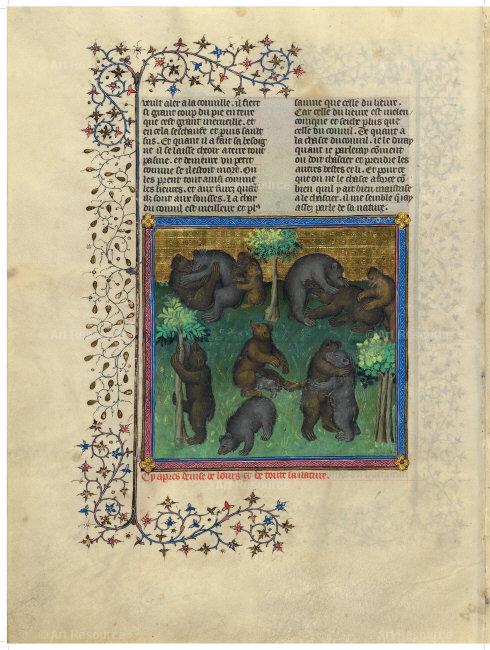 veult aler a la connille. il fiert
si grant coup du pie en terre
que cest grant merveille. et
en cela seschaufe et puis sault
sus. Et quant il a fait sa besoig
ne il se laisse cheoir a terre tout
pasme. et demeure un petit
comme se il estoit mort. On
les prent tout ainsi comme
les lievres. et aux furez quant
ilz sont aux fousses. La char
du connil est meilleur et plus
sainne que celle du lievre.
Car celle du lievre est melen
colique et seiche plus que
celle du connil. De quant a
la chasse du connil. ie le diray
quant ie parleray coment
on doit chassier et prendre les
autres bestes cy li. Et pource
que on ne le chasse a force co
bien quil y ait bien maistrise
a le chassier. il me semble que iay
assez parle de sa nature.
Cy apres devise de lours et de toute sa nature.
Art Resource